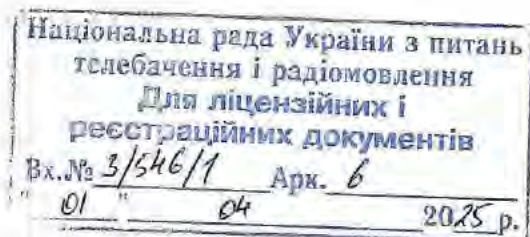 Національна рада України з питань
телебачення і радіомовлення
Для ліцензійних і
реєстраційних документів
Вх.№ 3/546/1 Арк. 6
" 01 " 04 2025 р.